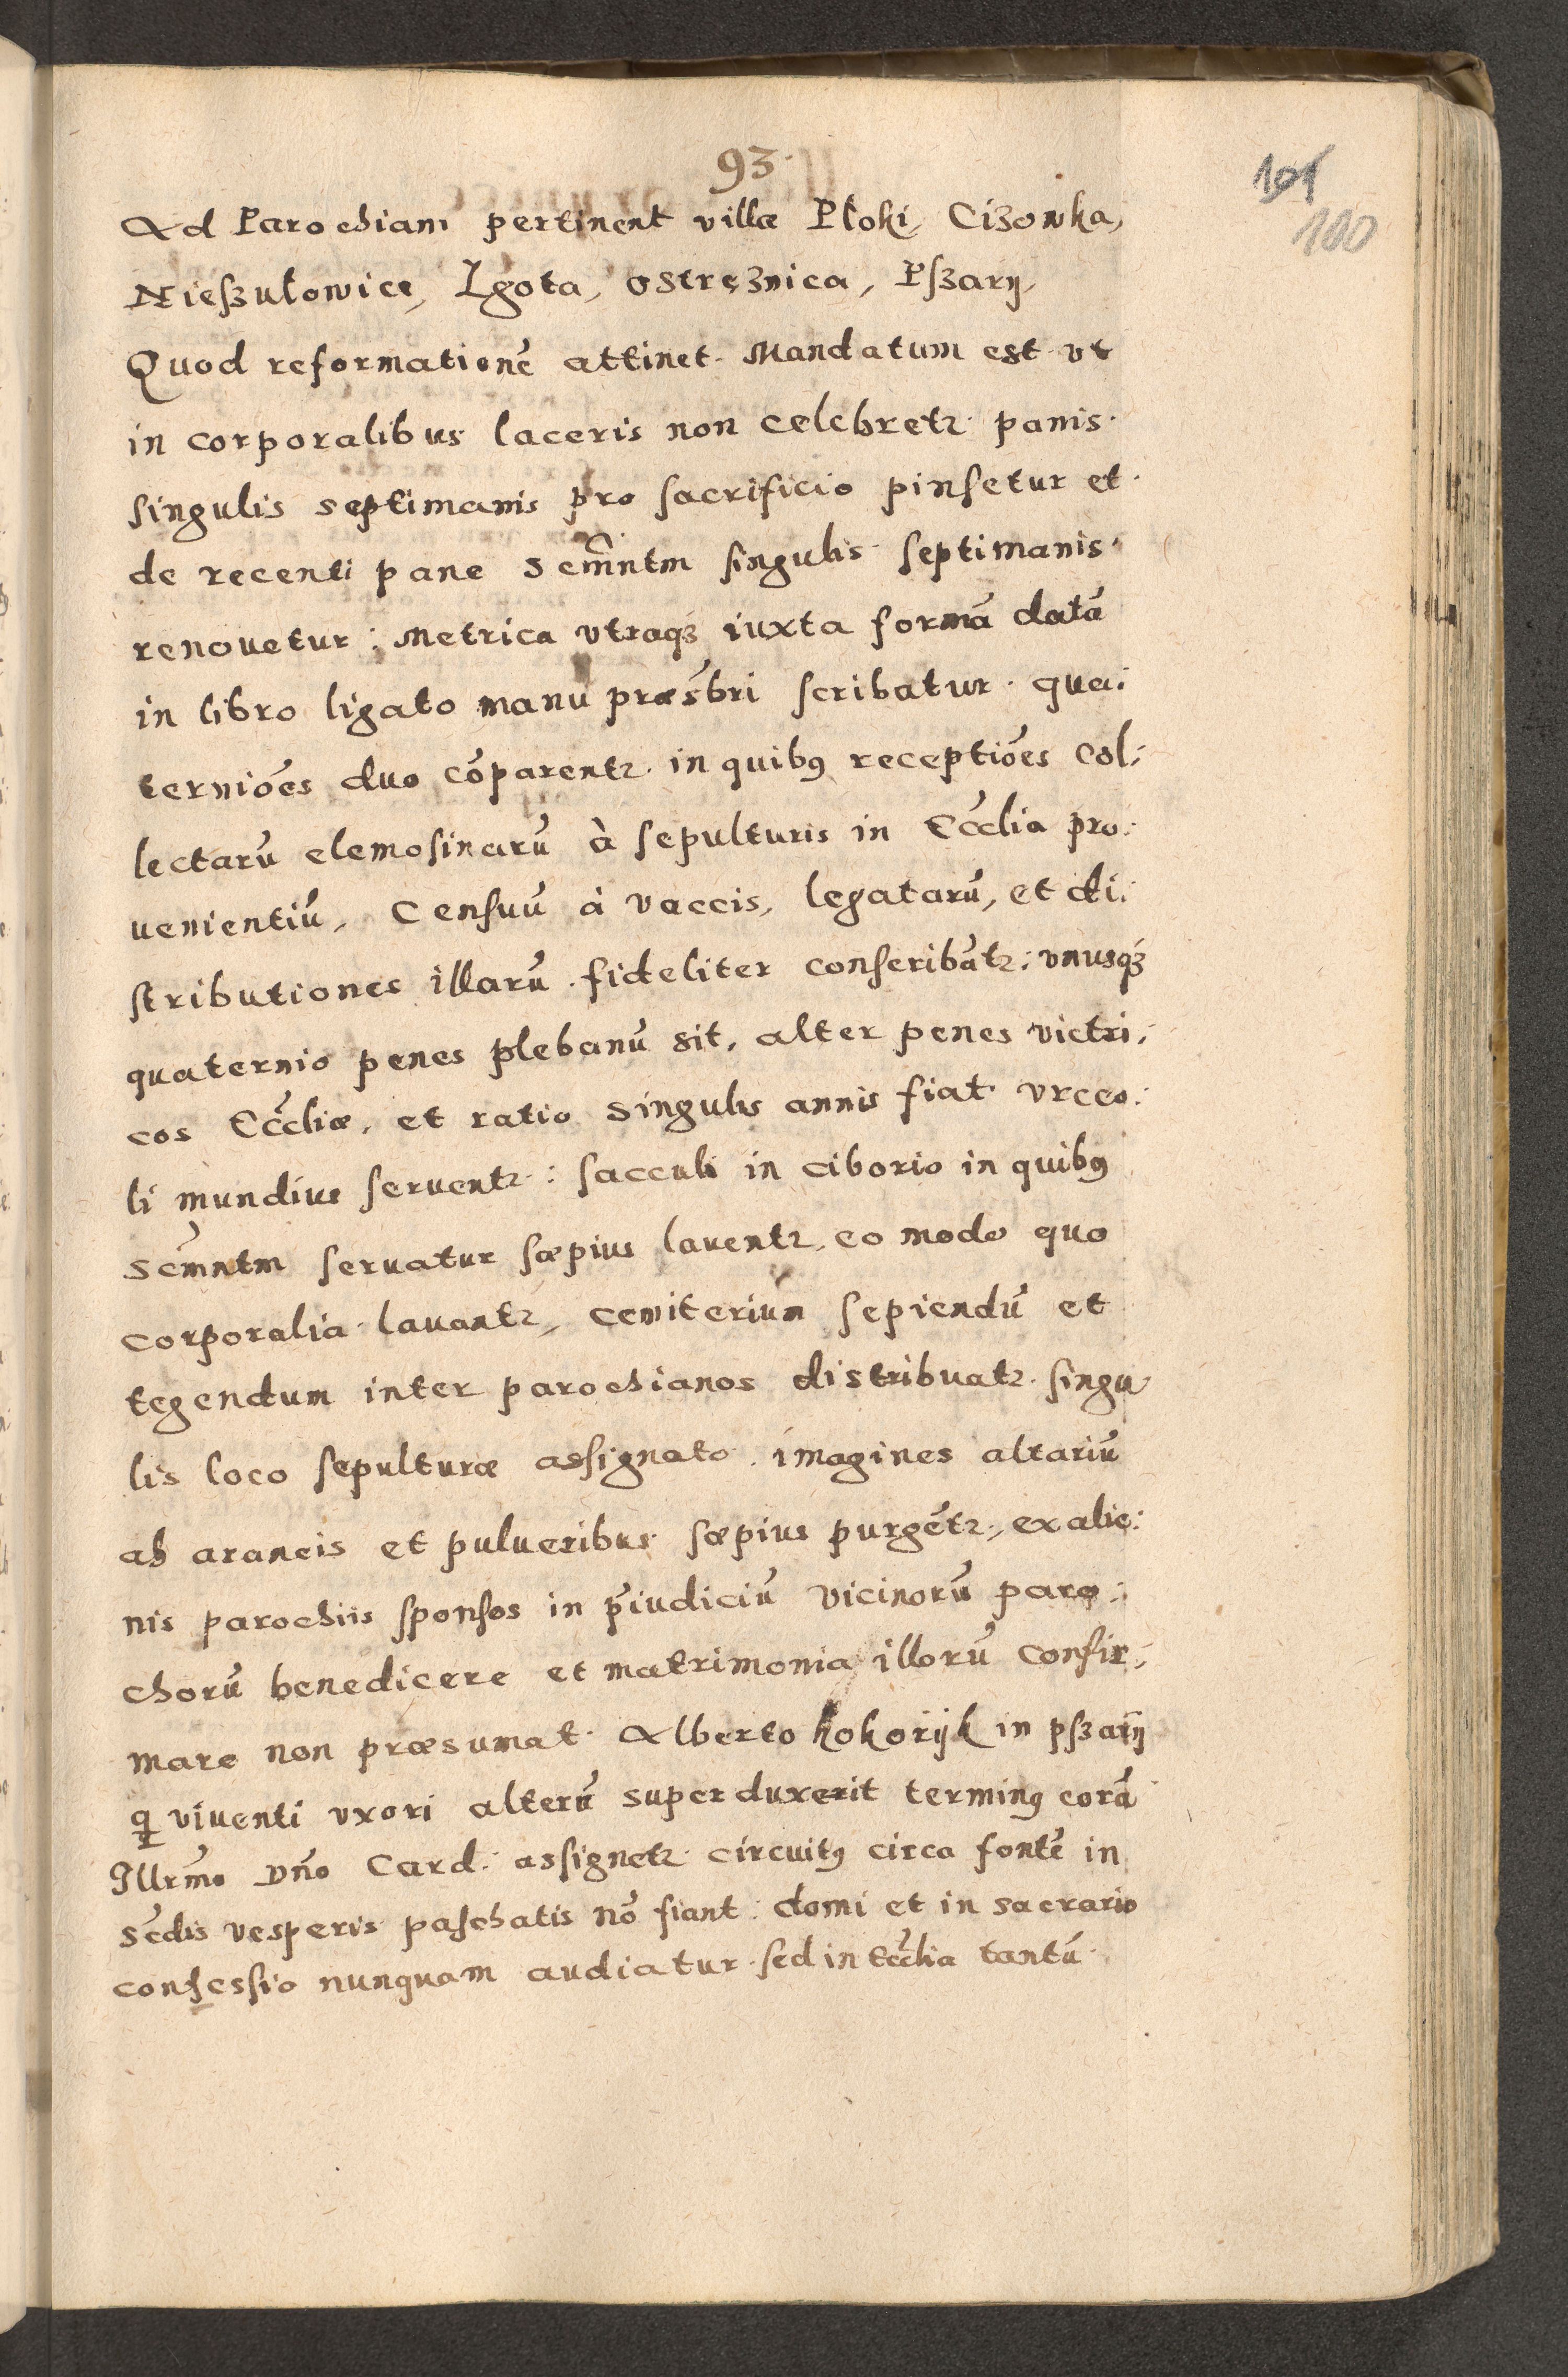 93.
101
100
Ad Parochiam pertinent villæ Płoki, Cizowka,
Nieſzułowice, Lgota, Ostręznica, Pſzarÿ,
Quod reformationē attinet. Mandatum est vt
in corporalibus laceris non celebretꝛ. panis.
singulis septimanis pro ſacrificio pinſetur et.
de recenti pane Scm̄ntm ſingulis ſeptimanis.
renouetur: Metrica vtraqꝫ iuxta formā datā
in libro ligato manu præsb̄ri ſcribatur. qua:
terniōes duo cōparentꝛ. in quibꝰ receptiōes Col:
lectarū elemoſinarū à ſepulturis in Eccl̄ia pro:
uenientiū, Censuū à vaccis, legatarū, et di:
ſtributiones illarū. fideliter conſeribātꝛ: vnusqꝫ
quaternio penes plebanū sit, alter penes vietri,:
cos Eccl̄iæ, et ratio singulis annis fiat vrceo:
li mundius ſeruentꝛ: ſacculi in ciborio in quibꝰ
scm̄ntm ſeruatur ſæpius lauentꝛ, eo modo quo
corporalia lauantꝛ, cemiterium ſepiendū et
tegendum inter parochianos distribuatꝛ. ſingu
lis loco ſepulturæ aſſignato. imagines altariū
ab araneis et pulueribus ſæpius purgētꝛ, ex alie:
nis parochiis ſponſos in p̄iudiciū vicinorū paro:
chorū benedicere et matrimonia illorū confir:
mare non præsumat. Alberto kokorÿk in pſzarÿ
qͥ viuenti vxori alterū superduxerit terminꝰ corā
Illrm̄o Dn̄o Card: assignetꝛ. circuitꝰ circa fontē in
Sc̄dis vesperis paſchatis nō fiant: domi et in sacrario
confeſſio nunquam audiatur. ſed in Eccl̄ia tantū.